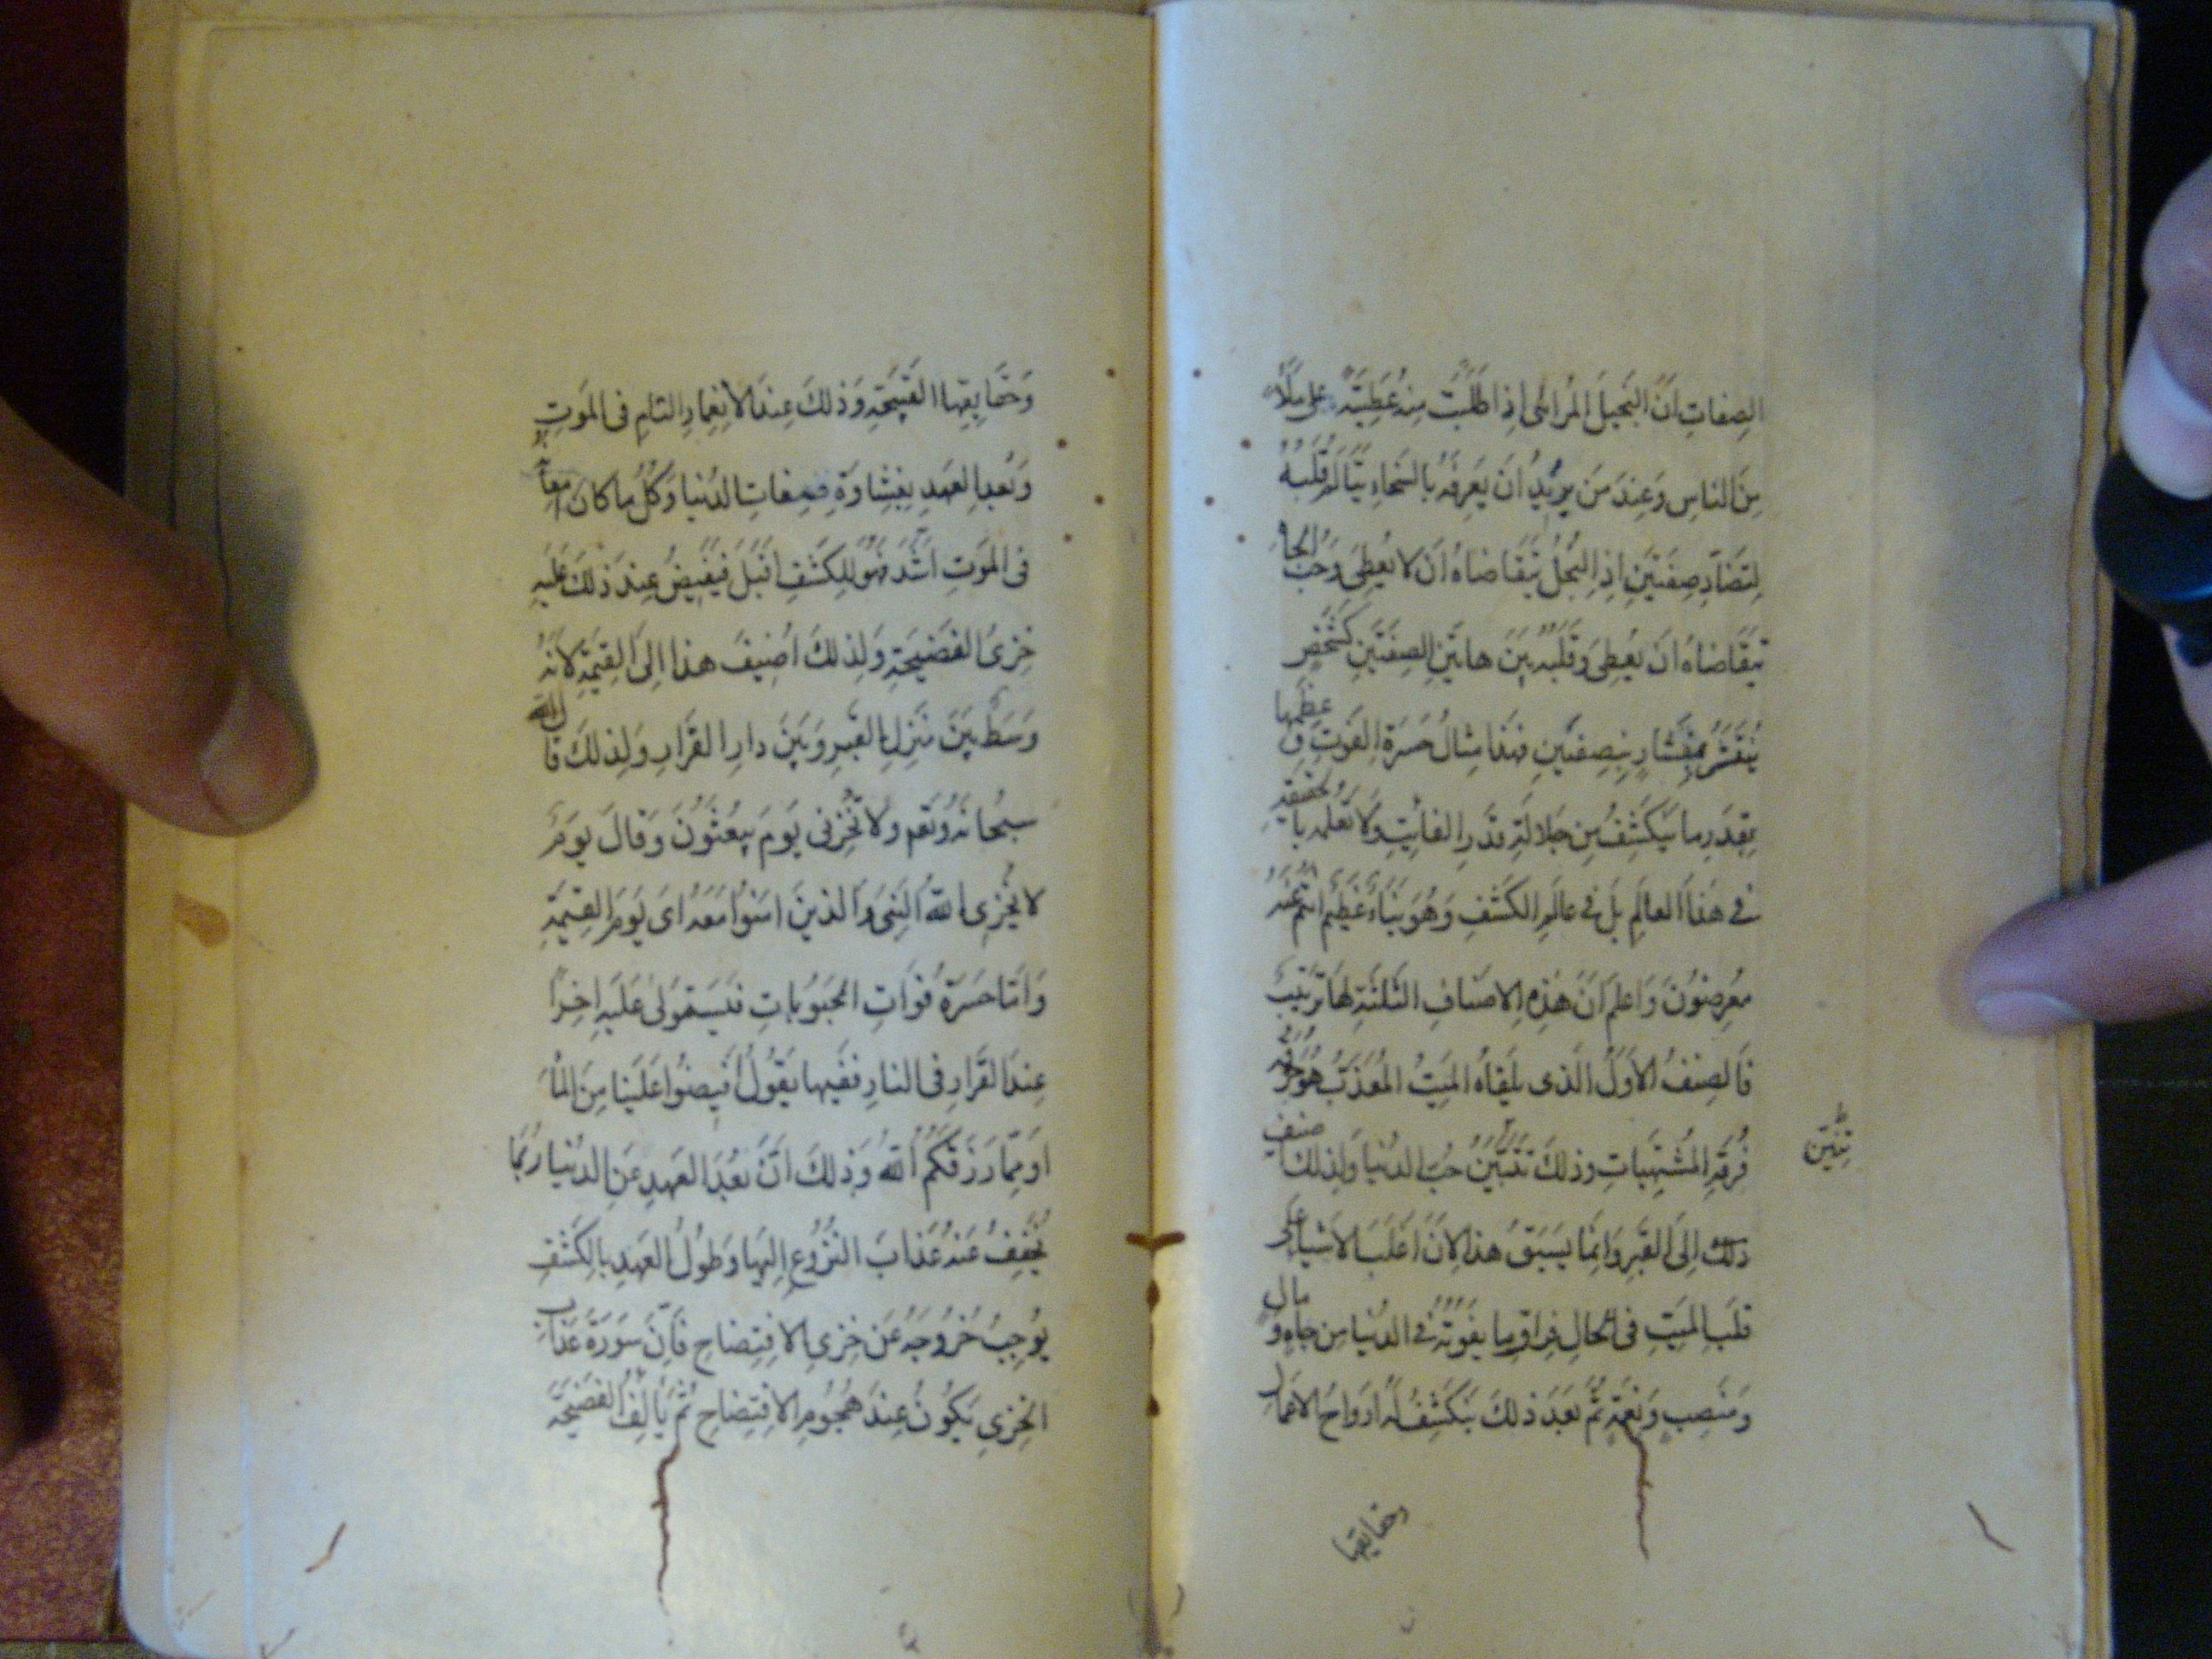 الصِفاتِ اَنَّ البَخيلَ المُرائى اِذا طَلَبْتَ مِنهُ عَطِيَّةً على مَلاً
مِنَ الناسِ وَعِندَ مَن يُريدُ اَن يَعرِفَهُ بِالسَخاءِ يَتَأَلَّمُ قَلبُهُ
لِتَضادِّ صِفَتَينِ اِذِ البُخلُ يَتَقاضاهُ اَن لا يُعطِىَ وَحُبُّ الجاه
يَتَقاضاهُ اَن يُعطِىَ وَقَلبُهُ بَينَ هاتَينِ الصِفَتَينِ كَشَخصٍ
بِنِصفَينِ فَهَذا مِثالُ حَسرَةِ الفَوتِ وَ عظمها
بِقَدرِ ما يَنكَشِفُ مِن جَلالَةِ قَدرِ الفائِتِ وَلا تَعلَمُهُ بالحقيقة
فى هَذا العالَمِ بَل فى عالَمِ الكَشفِ وَهُوَ نَبَاءٌ عَظيمٌ اَنتُم عَنهُ
مُعرِضُونَ وَاعلَم اَنَّ هَذِهِ الاَصنافَ الثَلثَةَ لَها تَرتيبٌ
فَالصِنفُ الاَوَّلُ الَّذى يَلقاهُ المَيِّتُ المُعَذَّبُ هُوَ حُرقَة
فُرقَةِ المُشتَهَياتِ وذلكَ تنّينُ حُبِّ الدُنيا وَلِذلكَ ضيف
تِنّين
ذلك اِلَى القَبرِ وَاِنَّما يَسبَقُ هذا لِاَنَّ اَغلَبَ الاَشياءِ على
قَلبِ المَيِّتِ فى الحالِ فِراقُ ما يَفوتُهُ فى الدُنيا مِن جاهٍ وَ مال
وَمَنصِبٍ وَنِعمَةٍ ثُمَّ بَعدَ ذلكَ يَنكَشِفُ لَهُ اَرواحُ الاَعمال
وحقايقها
وَحَقايِقِها القَبيحَةِ وَذلكَ عِندَ الاِنغِمارِ التامِ فى المَوتِ
وَبُعدِ العَهدِ بِغِشاوَةِ صِفاتِ الدُنيا وَكُلُّ ما كانَ
فى المَوتِ اَشَدَّ فَهُوَ لِلكَشفِ اَقبَلُ فَيَفيضُ عِندَ ذلكَ عَلَيهِ
خِزىُ الفَضيحَةِ وَلِذلكَ اُضيفَ هذا اِلَى القِيمَةِ لاَنَّهُ
وَسَطٌ بَينَ مَنزِلِ القَبرِ وَبَينَ دارِ القَرارِ وَلِذلكَ قال الله
سبحانَهُ وَتَعم وَلا تُخزِنى يَومَ يُبعَثُونَ وَقالَ يَومَ
لا يُخزِى اللهُ النَبِىَّ وَالَّذينَ امَنُوا مَعَهُ اَى يَومَ القِيمَةِ
وَاَمّا حَسرَةُ فَواتِ المَحبُوباتِ فَيَستَولى عَلَيهِ اخِراً
عِندَ القَرارِ فى النارِ فَفيها يَقُولُ اَفيضُوا عَلَينا مِنَ الماءِ
اَو مِمّا رَزَقَكُمُ اللهُ وَذلكَ اَنَّ بُعدَ العَهدِ عَنِ الدُنيا رُبَّما
يُخَفِّفُ عَنهُ عَذابَ النُزُوعِ اِلَيها وَطُولُ العَهدِ بِالكَشفِ
يُوجِبُ خُرُوجَهُ عَن خِزىِ الاِفتِضاحِ فَاِنَّ سَورَةَ عَذابِ
الخِزىِ يَكُونُ عِندَ هُجُومِ الاِفتِضاحِ ثُمَّ يَألَفُ الفَضيحَةَ